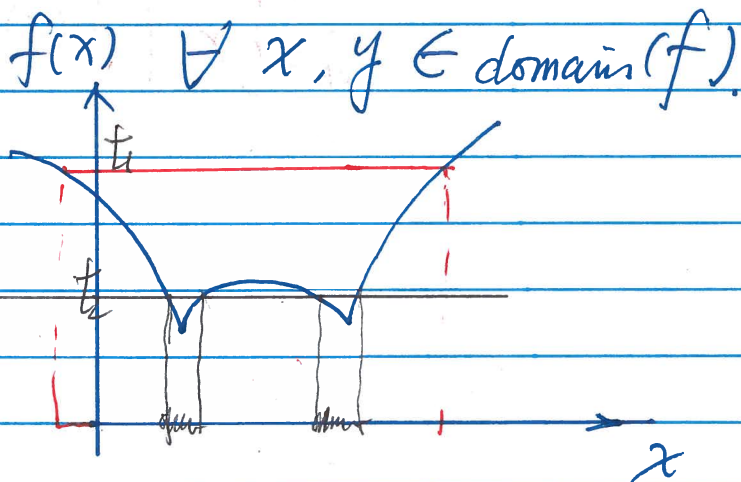 f(x) ∀ x, y ∈ domain(f).
t₁
t₂
x